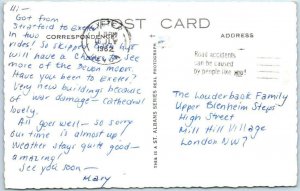 POST CARD
Hi:-
Got from
Stratford to Exeter
in two
rides! So skipped
will have a chance to see
more of the Devon moors.
Have you been to Exeter?
Very new buildings because
of war damage - Cathedral
lovely.
All goes well - so sorry
our time is almost up!
Weather stays quite good -
amazing!
See you soon -
Mary
CORRESPONDENCE
ADDRESS
1962
Road accidents
can be caused
by people like you!
THIS IS A ST. ALBANS SERIES REAL PHOTOGRAPH
The Louderback Family
Upper Blenheim Steps
High Street
Mill Hill Village
London NW7